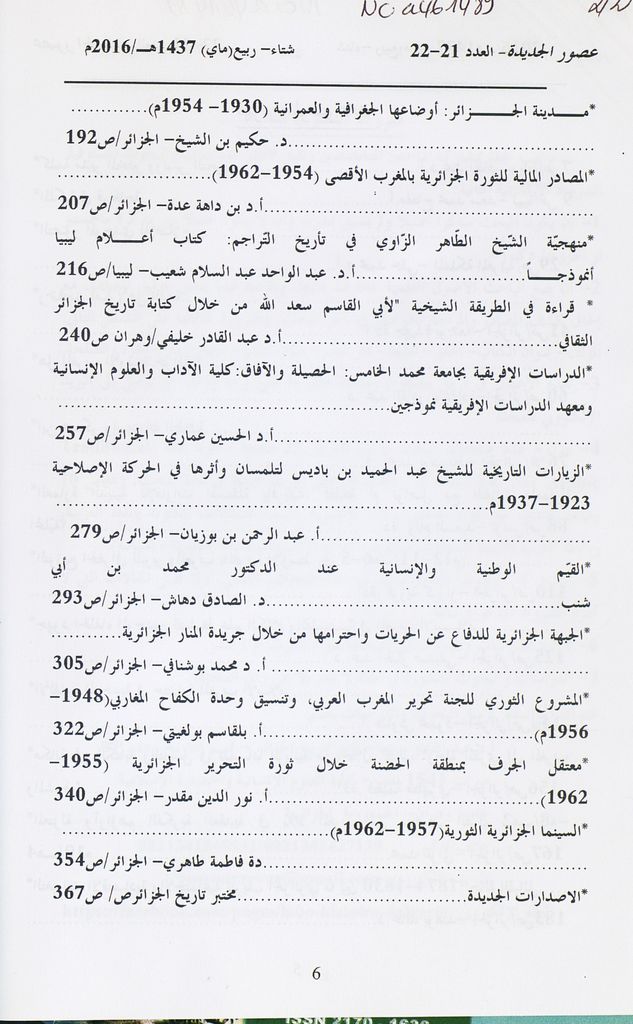 NC a461489
عصور الجديدة- العدد 21-22 شتاء- ربيع(ماي) 1437هـ/2016م
*مــدينة الجــــزائر: أوضاعها الجغرافية والعمرانية (1930- 1954م)..............
........................................د. حكيم بن الشيخ- الجزائر/ص192
*المصادر المالية للثورة الجزائرية بالمغرب الأقصى (1954-1962)....................
........................................أ.د بن داهة عدة- الجزائر/ص207
*منهجيّة الشّيخ الطّاهر الزّاوي في تأريخ التّراجم: كتاب أعــلام ليبيا
أنموذجــــاً....................أ.د. عبد الواحد عبد السلام شعيب- ليبيا/ص216
* قراءة في الطريقة الشيخية "لأبي القاسم سعد الله من خلال كتابة تاريخ الجزائر
الثقافي........................................أ.د عبد القادر خليفي/وهران ص240
*الدراسات الإفريقية بجامعة محمد الخامس: الحصيلة والآفاق:كلية الآداب والعلوم الإنسانية
ومعهد الدراسات الإفريقية نموذجين........................................
........................................أ.د الحسين عماري- الجزائر/ص257
*الزيارات التاريخية للشيخ عبد الحميد بن باديس لتلمسان وأثرها في الحركة الإصلاحية
1923-1937م........................................
........................................أ. عبد الرحمن بن بوزيان- الجزائر/ص279
*القيَم الوطنية والإنسانية عند الدكتور محمد بن أبي
شنب........................................د. الصادق دهاش- الجزائر/ص293
*الجبهة الجزائرية للدفاع عن الحريات واحترامها من خلال جريدة المنار الجزائرية............
........................................أ. د محمد بوشنافي- الجزائر/ص305
*المشروع الثوري للجنة تحرير المغرب العربي، وتنسيق وحدة الكفاح المغاربي(1948-
1956م)........................................أ. بلقاسم بولغيتي- الجزائر/ص322
*معتقل الجرف بمنطقة الحضنة خلال ثورة التحرير الجزائرية (1955-
1962)........................................أ. نور الدين مقدر- الجزائر/ص340
*السينما الجزائرية الثورية(1957-1962م)........................................
........................................دة فاطمة طاهري- الجزائر/ص354
*الاصدارات الجديدة..............................مختبر تاريخ الجزائرص/ ص367
6
ISSN 2170 - 1636